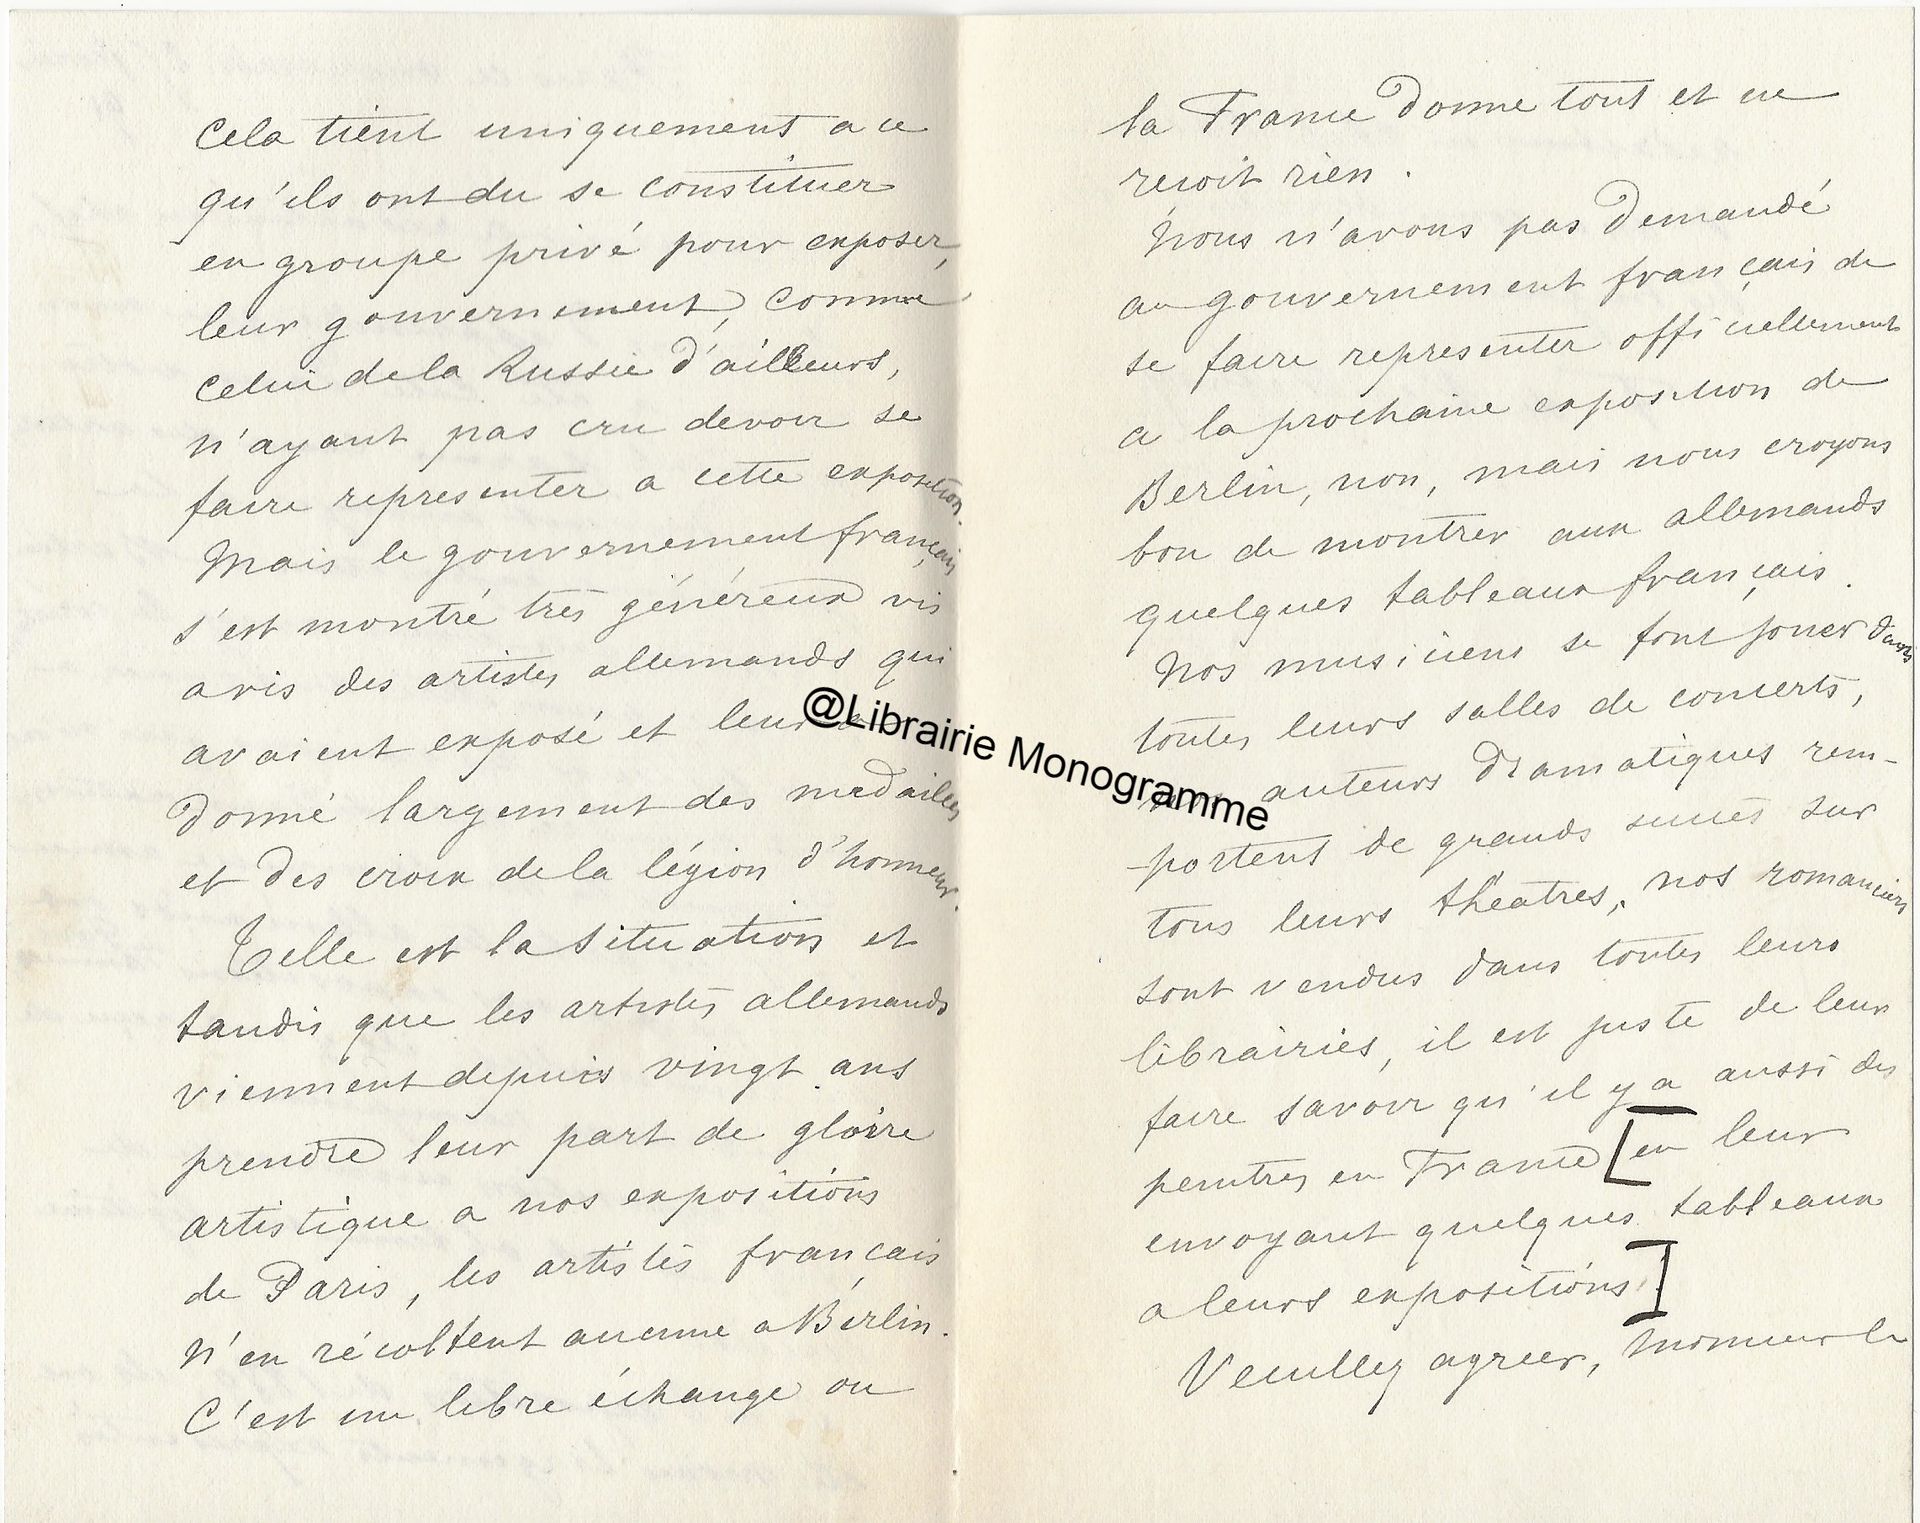 Cela tient uniquement a ce
qu'ils ont du se constituer
en groupe privé pour exposer,
leur gouvernement, comme
celui de la Russie d'ailleurs,
n'ayant pas cru devoir se
faire representer a cette exposition.
Mais le gouvernement français
s'est montré très généreux vis
avis des artistes allemands qui
avaient exposé et leur a
donné largement des medailles
et des croix de la légion d'honneur.
Telle est la situation et
tandis que les artistes allemands
viennent depuis vingt ans
prendre leur part de gloire
artistique a nos expositions
de Paris, les artistes français
n'en récoltent aucune a Berlin.
C'est un libre échange ou
la France donne tout et ne
reçoit rien.
Nous n'avons pas demandé
au gouvernement français de
se faire representer officiellement
a la prochaine exposition de
Berlin, non, mais nous croyons
bon de montrer aux allemands
quelques tableaux français.
Nos musiciens se font jouer dans
toutes leurs salles de concerts,
nos auteurs dramatiques rem-
-portent de grands succès sur
tous leurs théatres, nos romanciers
sont vendus dans toutes leurs
librairies, il est juste de leur
faire savoir qu'il y a aussi des
peintres en France [en leur
envoyant quelques tableaux
a leurs expositions]
Veuillez agreer, Monsieur le
@Librairie Monogramme